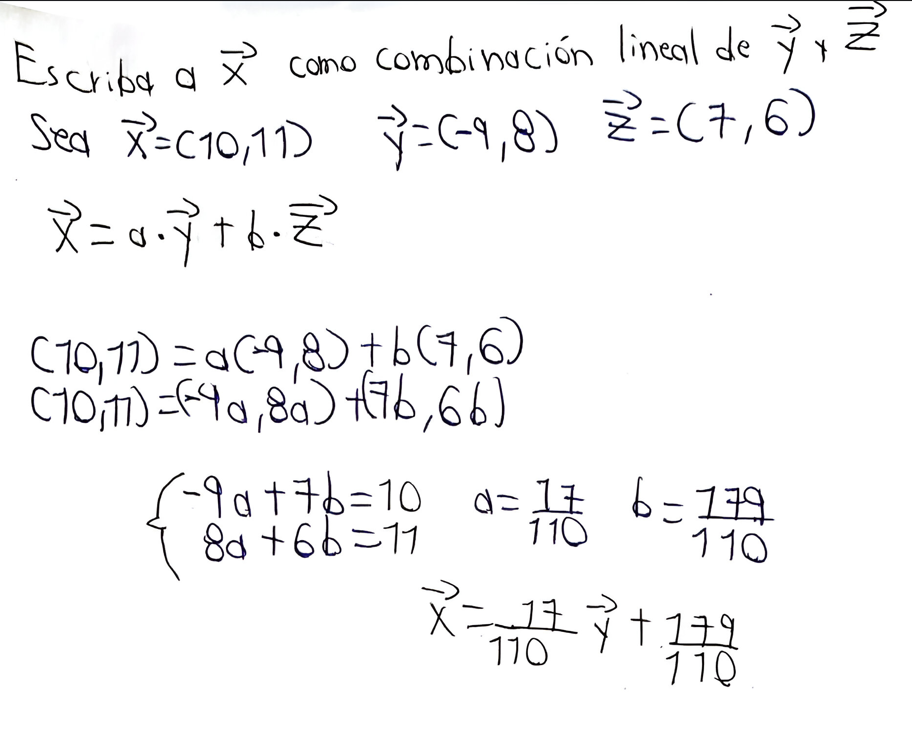 Escriba a x⃗ como combinación lineal de y⃗ y z⃗
Sea x⃗=(10,11) y⃗=(-9,8) z⃗=(7,6)
x⃗=a·y⃗+b·z⃗
(10,11)=a(-9,8)+b(7,6)
(10,11)=(-9a,8a)+(7b,6b)
{-9a+7b=10 a=17/110 b=179/110
8a+6b=11
x⃗=17/110 y⃗+179/110